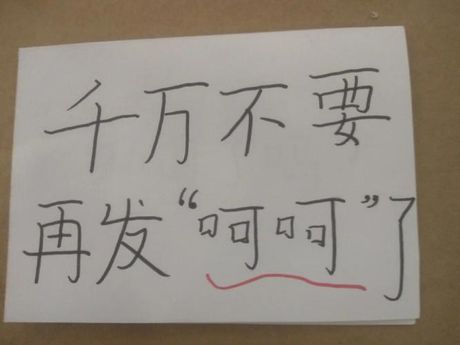 千万不要
再发“呵呵”了